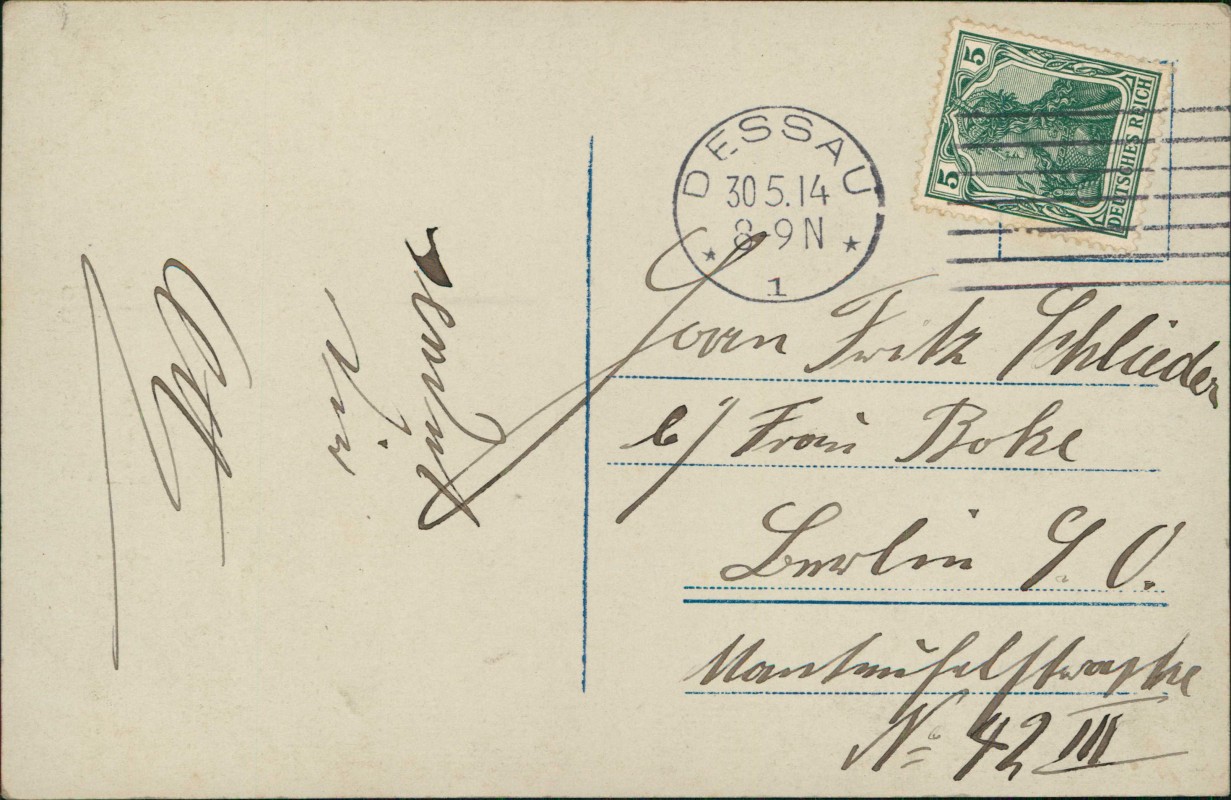 DESSAU
30 5.14
8-9 N
* 1 *
5 5
DEUTSCHES REICH
Herrn Fritz Schlieder
b/ Frau Boke
Berlin S. O.
Manteufelstraße
No 42 III